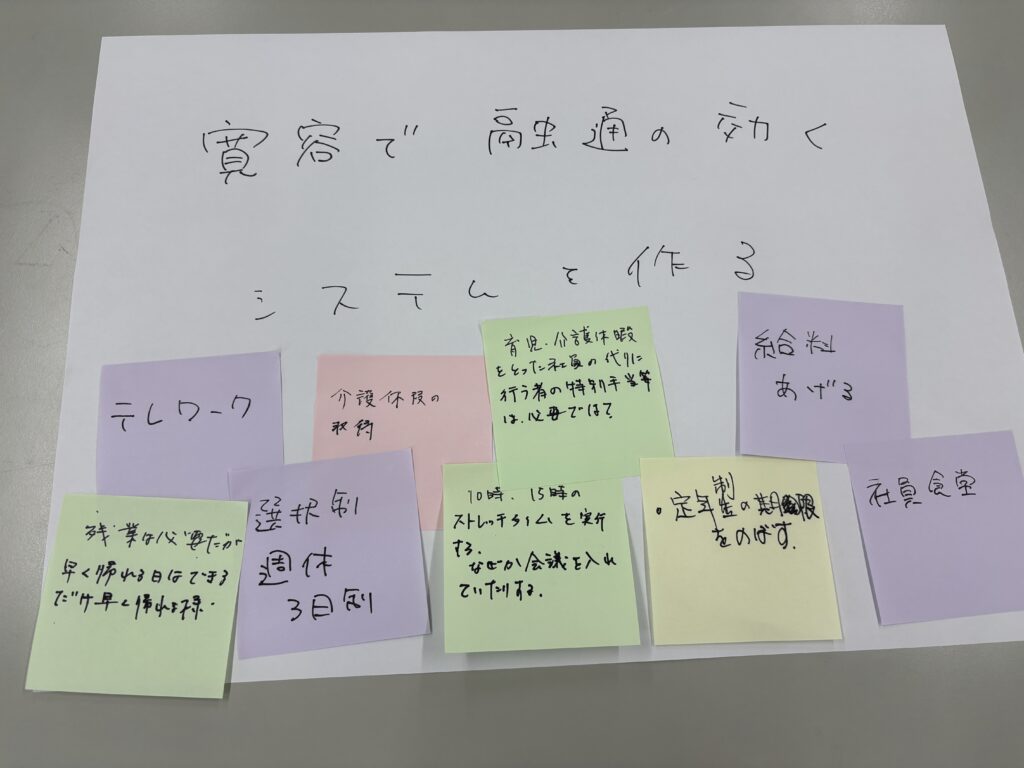 寛容で 融通の 効く
システムを作る
テレワーク
介護休暇の
取得
育児・介護休暇
をとった社員の代りに
行う者の特別手当等
は、必要では？
給料
あげる
残業は必要だが
早く帰れる日はできる
だけ早く帰れる様.
選択制
週休
3日制
10時、15時の
ストレッチタイムを実行
する.
なぜか会議を入れ
ていたりする.
・定年制の期限
をのばす.
社員食堂